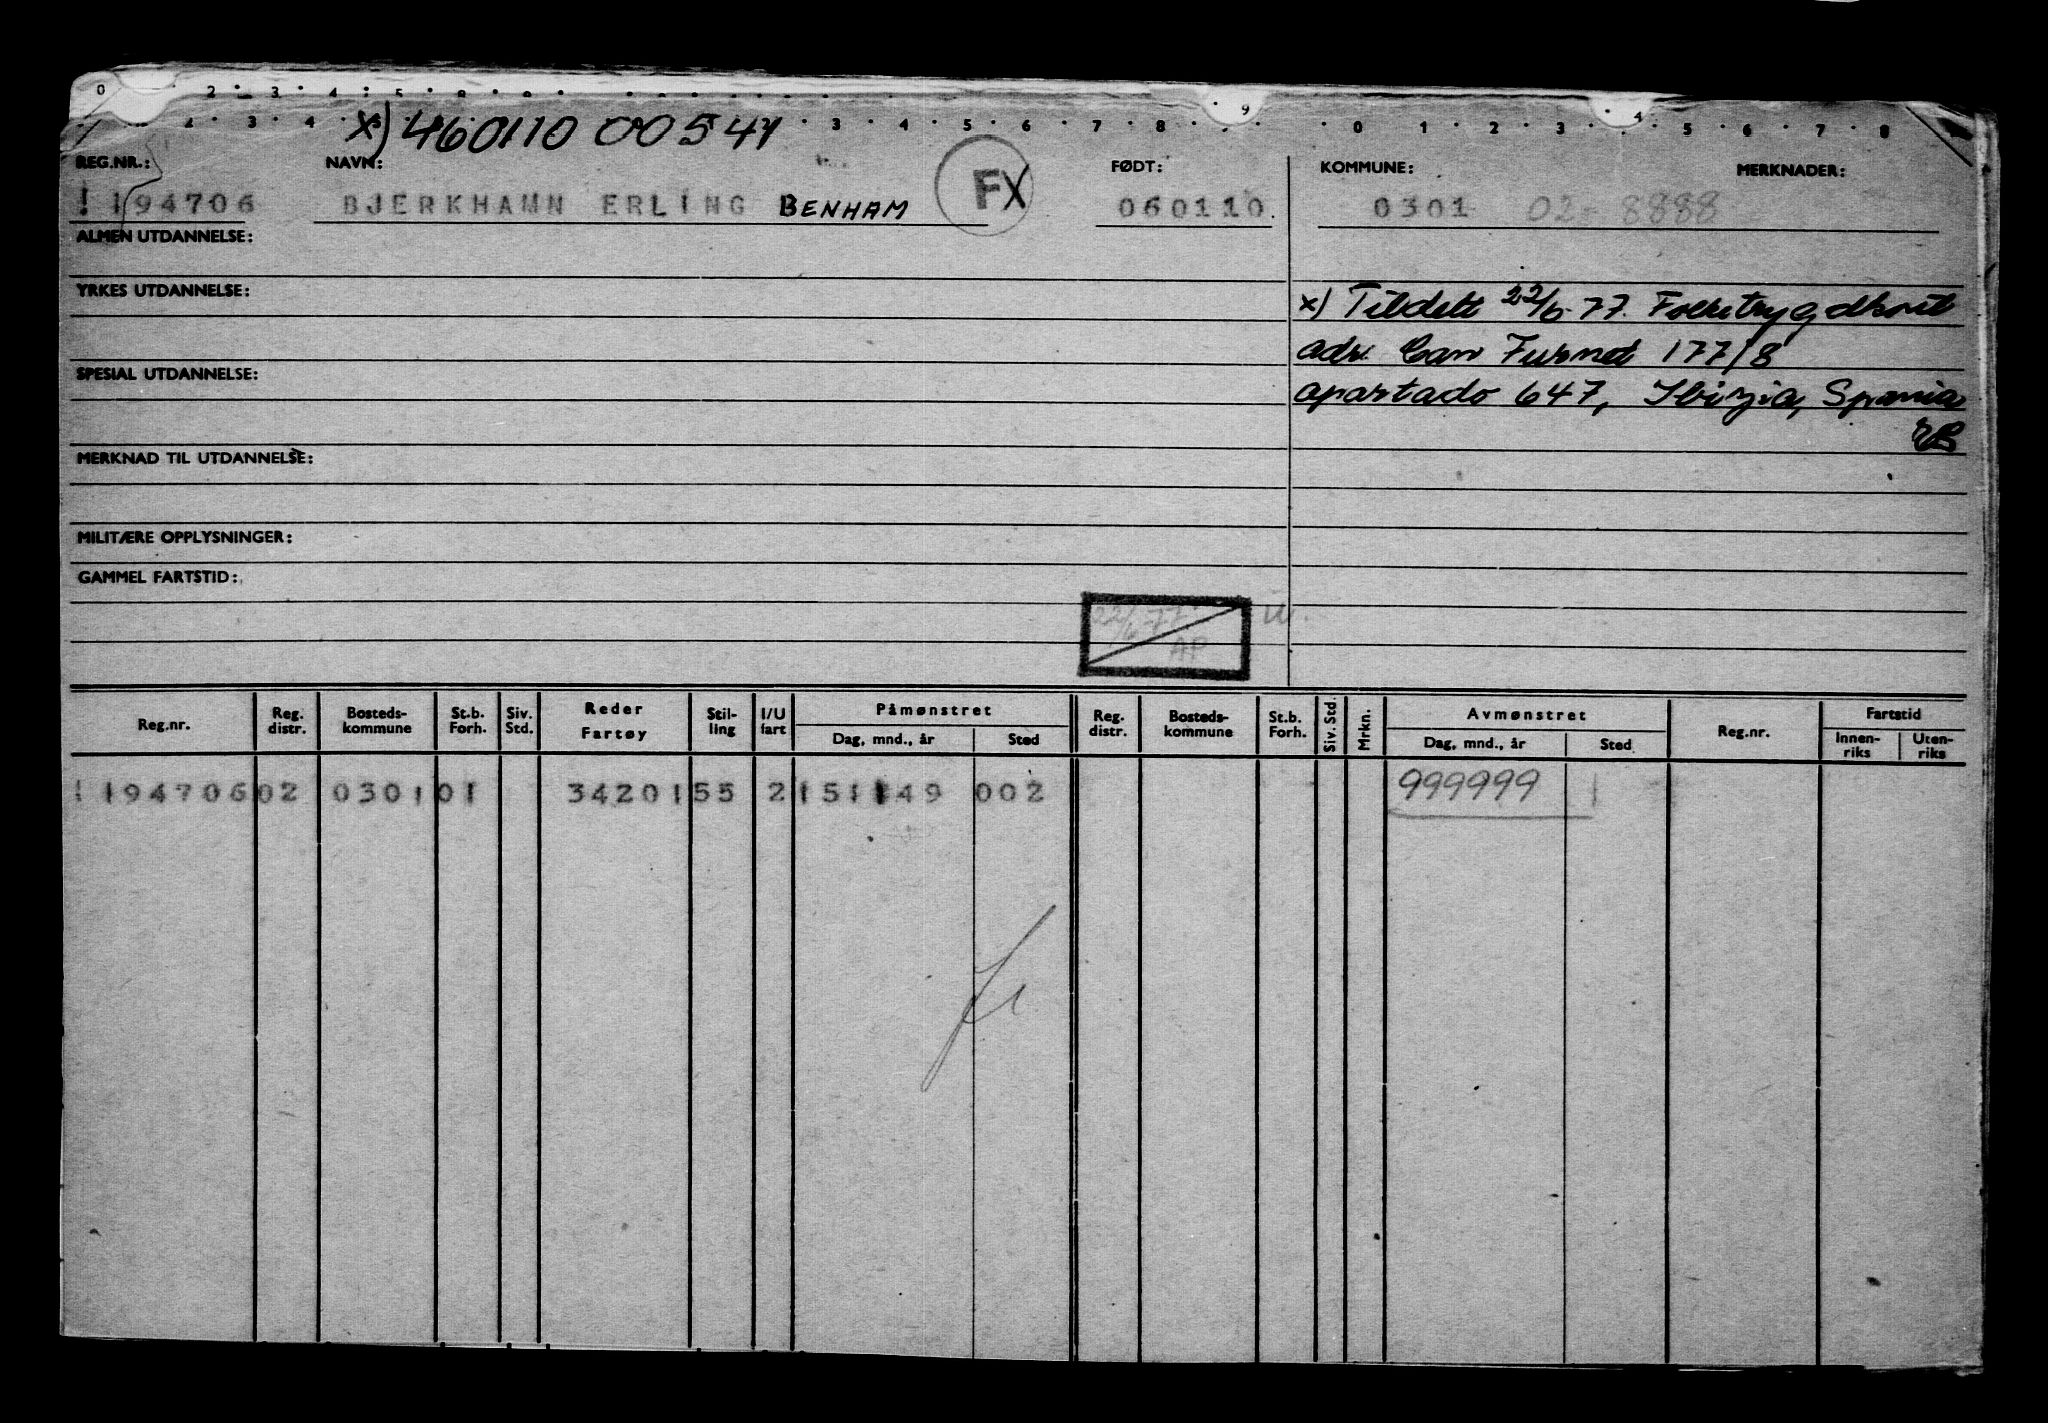 x) 460110 00541
REG.NR.: NAVN: FØDT: KOMMUNE: MERKNADER:
! 194706 BJERKHAMN ERLING BENHAM FX 060110 0301 02- 8888
ALMEN UTDANNELSE:
YRKES UTDANNELSE:
x) Tildelt 22/6-77. Folketrygdkont
adr. Can Furnet 177/8
SPESIAL UTDANNELSE:
apartado 647, Ibizia, Spania
MERKNAD TIL UTDANNELSE:
MILITÆRE OPPLYSNINGER:
GAMMEL FARTSTID:
22/6-77
AP
Reg.nr. Reg. distr. Bosteds-kommune St.b. Forh. Siv. Std. Reder Fartøy Stil-ling I/U fart Påmønstret Dag, mnd., år Sted Reg. distr. Bosteds-kommune St.b. Forh. Siv. Std. Mrkn. Avmønstret Dag, mnd., år Sted Reg.nr. Fartstid Innen-riks Uten-riks
! 194706 02 0301 01 34201 55 2 151149 002 999999 1